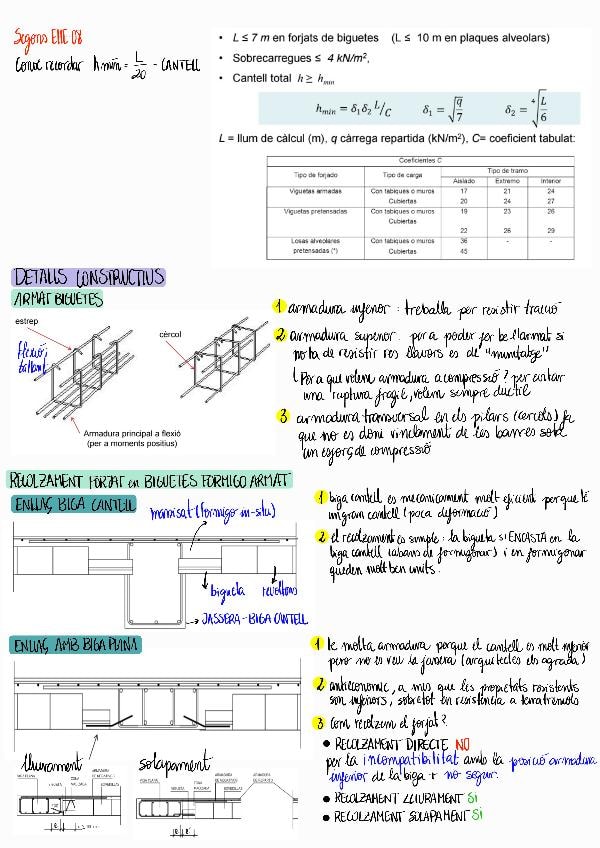 Segons EHE 08
Convé recordar hmín = L/20 - CANTELL
• L ≤ 7 m en forjats de biguetes (L ≤ 10 m en plaques alveolars)
• Sobrecarregues ≤ 4 kN/m²,
• Cantell total h ≥ hmin
hmin = δ1δ2 L/C δ1 = √(q/7) δ2 = ⁴√(L/6)
L = llum de càlcul (m), q càrrega repartida (kN/m²), C= coeficient tabulat:
Coeficientes C
Tipo de forjado Tipo de carga Tipo de tramo
Aislado Extremo Interior
Viguetas armadas Con tabiques o muros 17 21 24
Cubiertas 20 24 27
Viguetas pretensadas Con tabiques o muros 19 23 26
Cubiertas 22 26 29
Losas alveolares pretensadas (*) Con tabiques o muros 36 - -
Cubiertas 45
DETALLS CONSTRUCTIUS
ARMAT BIGUETES
estrep
cèrcol
flexió i tallant
Armadura principal a flexió
(per a moments positius)
1 armadura inferior : treballa per resistir tracció
2 armadura superior. per a poder fer be l'armat si
no ha de resistir res llavors es de "muntatge"
Per a que volem armadura a compressió? per evitar
una ruptura fragil, volem sempre ductil
3 armadura transversal en els pilars (cercols) fa
que no es doni vinclament de les barres sota
un esforç de compressió
RECOLZAMENT FORJAT en BIGUETES FORMIGO ARMAT
ENLLAÇ BIGA CANTELL
massissat (formigo in-situ)
bigueta
revoltons
JASSERA - BIGA CANTELL
1 biga cantell es mecanicament molt eficient perque té
un gran cantell (poca deformació)
2 el recolzament es simple : la bigueta s'ENCASTA en la
biga cantell (abans de formigonar) i en formigonar
queden molt ben units.
ENLLAÇ AMB BIGA PLANA
1 te molta armadura perque el cantell es molt inferior
pero no es veu la jassera (arquitectes els agrada)
2 antieconomic, a mes que les propietats resistents
son inferiors, sobretot en resistència a terratremols
3 Com recolzem el forjat?
• RECOLZAMENT DIRECTE NO
per la incompatibilitat amb la posició armadura
inferior de la biga + no segur.
• RECOLZAMENT LLIURAMENT SI
• RECOLZAMENT SOLAPAMENT SI
lliurament
solapament